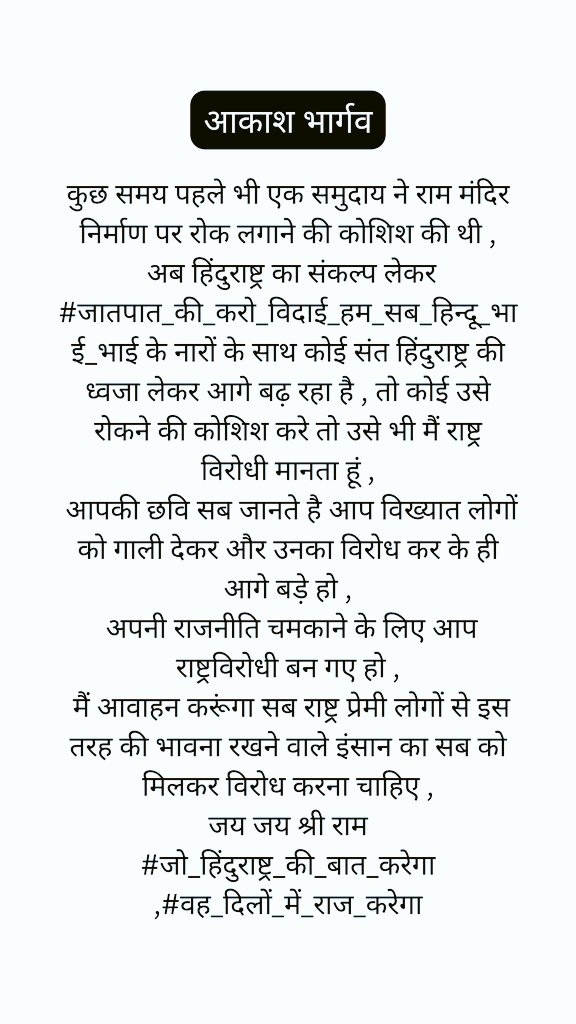 आकाश भार्गव
कुछ समय पहले भी एक समुदाय ने राम मंदिर
निर्माण पर रोक लगाने की कोशिश की थी ,
अब हिंदुराष्ट्र का संकल्प लेकर
#जातपात_की_करो_विदाई_हम_सब_हिन्दू_भा
ई_भाई के नारों के साथ कोई संत हिंदुराष्ट्र की
ध्वजा लेकर आगे बढ़ रहा है , तो कोई उसे
रोकने की कोशिश करे तो उसे भी मैं राष्ट्र
विरोधी मानता हूं ,
आपकी छवि सब जानते है आप विख्यात लोगों
को गाली देकर और उनका विरोध कर के ही
आगे बड़े हो ,
अपनी राजनीति चमकाने के लिए आप
राष्ट्रविरोधी बन गए हो ,
मैं आवाहन करूंगा सब राष्ट्र प्रेमी लोगों से इस
तरह की भावना रखने वाले इंसान का सब को
मिलकर विरोध करना चाहिए ,
जय जय श्री राम
#जो_हिंदुराष्ट्र_की_बात_करेगा
,#वह_दिलों_में_राज_करेगा